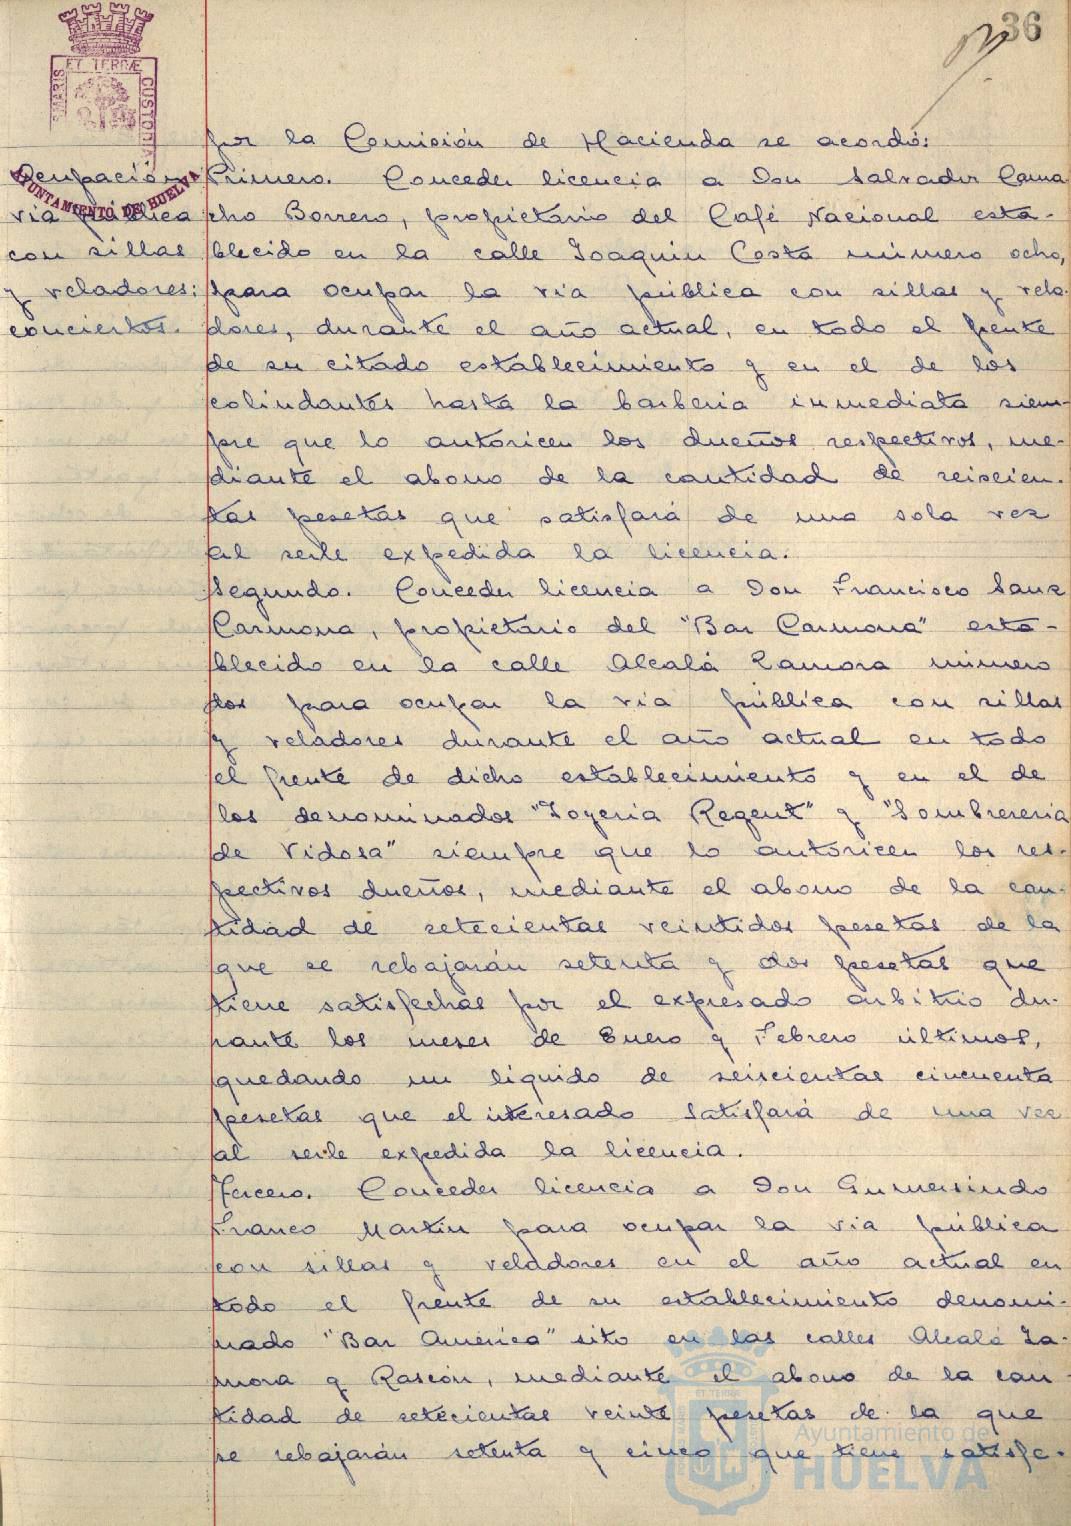 36
ET TERRÆ
MARIS
CUSTODIA
AYUNTAMIENTO DE HUELVA
Ocupación
vía pública
con sillas
y veladores;
conciertos.
por la Comisión de Hacienda se acordó:
Primero. Conceder licencia a Don Salvador Cama
cho Borrero, propietario del Café Nacional esta-
blecido en la calle Joaquin Costa número ocho,
para ocupar la via pública con sillas y vela-
dores, durante el año actual, en todo el frente
de su citado establecimiento y en el de los
colindantes hasta la barberia inmediata siem-
pre que lo autoricen los dueños respectivos, me-
diante el abono de la cantidad de seiscien-
tas pesetas que satisfará de una sola vez
al serle expedida la licencia.
Segundo. Conceder licencia a Don Francisco Sanz
Carmona, propietario del "Bar Carmona" esta-
blecido en la calle Alcalá Zamora número
dos para ocupar la via pública con sillas
y veladores durante el año actual en todo
el frente de dicho establecimiento y en el de
los denominados "Joyeria Regent" y "Sombrereria
de Vidosa" siempre que lo autoricen los res-
pectivos dueños, mediante el abono de la can-
tidad de setecientas veintidos pesetas de la
que se rebajarán setenta y dos pesetas que
tiene satisfechas por el expresado arbitrio du-
rante los meses de Enero y Febrero últimos,
quedando un liquido de seiscientas cincuenta
pesetas que el interesado satisfará de una vez
al serle expedida la licencia.
Tercero. Conceder licencia a Don Gumersindo
Franco Martin para ocupar la via pública
con sillas y veladores en el año actual en
todo el frente de su establecimiento denomi-
nado "Bar América" sito en las calles Alcalá Za-
mora y Rascón, mediante el abono de la can-
tidad de setecientas veinte pesetas de la que
se rebajarán setenta y cinco que tiene satisfe-
Ayuntamiento de
HUELVA